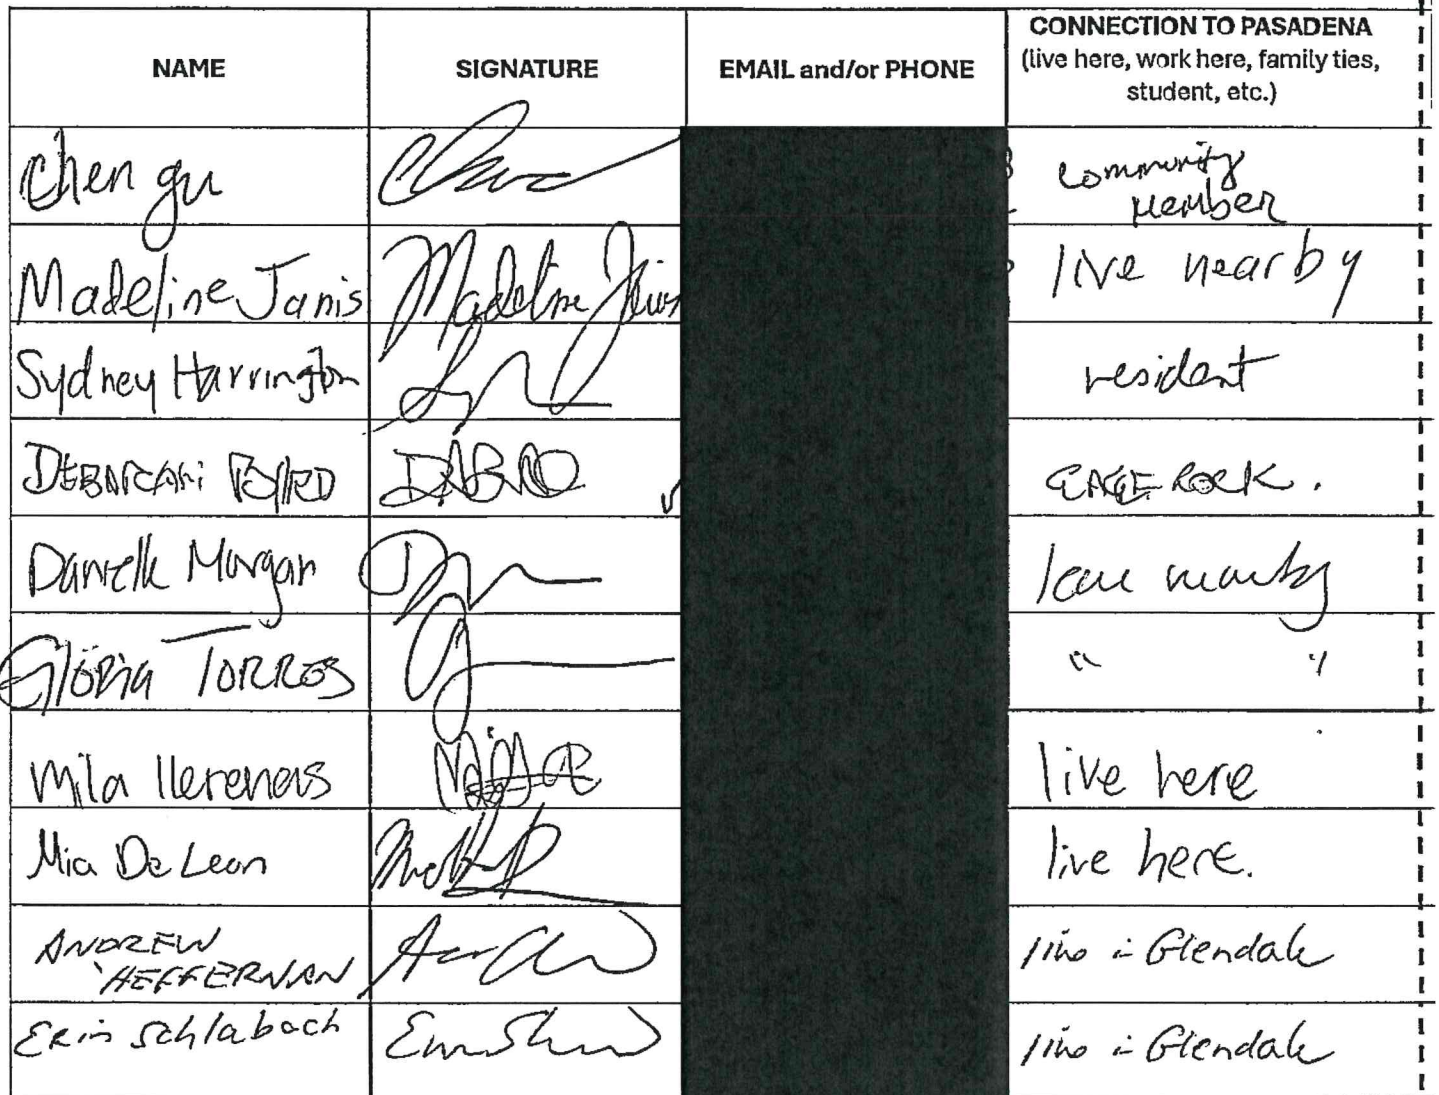 NAME SIGNATURE EMAIL and/or PHONE CONNECTION TO PASADENA
(live here, work here, family ties,
student, etc.)
Chen gu community
member
Madeline Janis Madeline Janis live nearby
Sydney Harrington resident
EAGE ROCK.
Danielle Morgan nearby
Gloria TORRES " "
Mila llerenas live here
Mia De Leon live here.
ANDREW
HEFFERNAN live in Glendale
Erin Schlabach live in Glendale